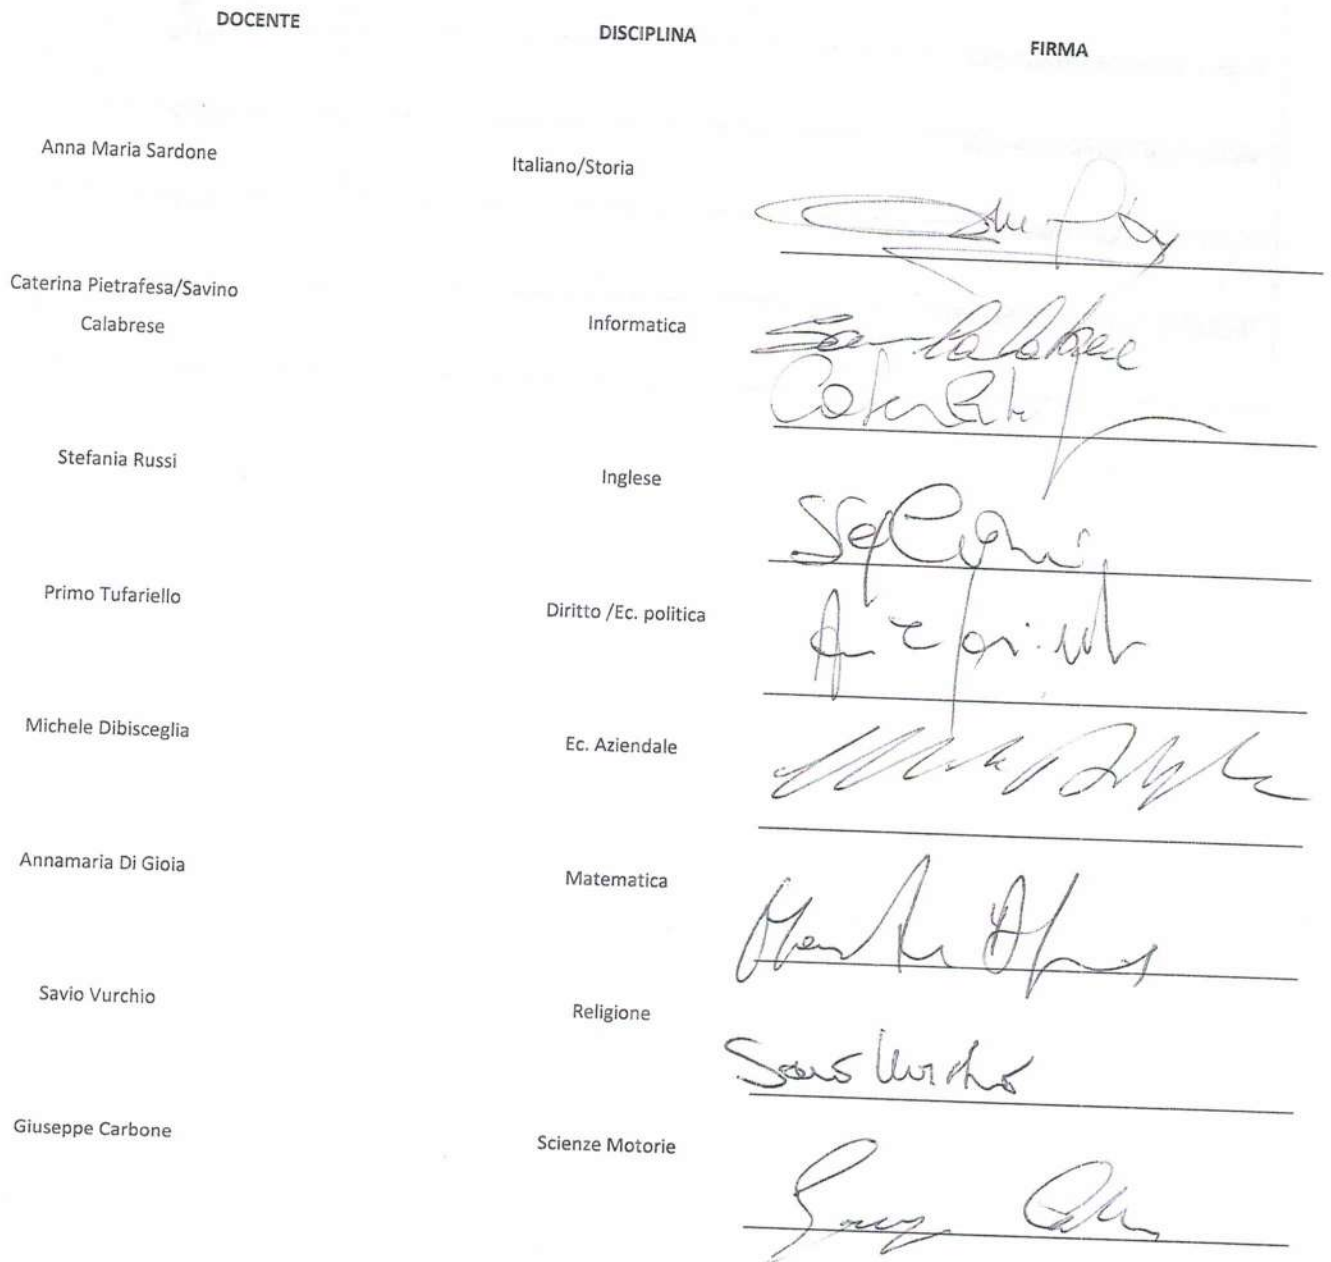 DOCENTE DISCIPLINA FIRMA
Anna Maria Sardone Italiano/Storia
Caterina Pietrafesa/Savino
Calabrese Informatica
Calabrese
Stefania Russi Inglese
Primo Tufariello Diritto /Ec. politica
Michele Dibisceglia Ec. Aziendale
Annamaria Di Gioia Matematica
Savio Vurchio Religione
Savio Vurchio
Giuseppe Carbone Scienze Motorie